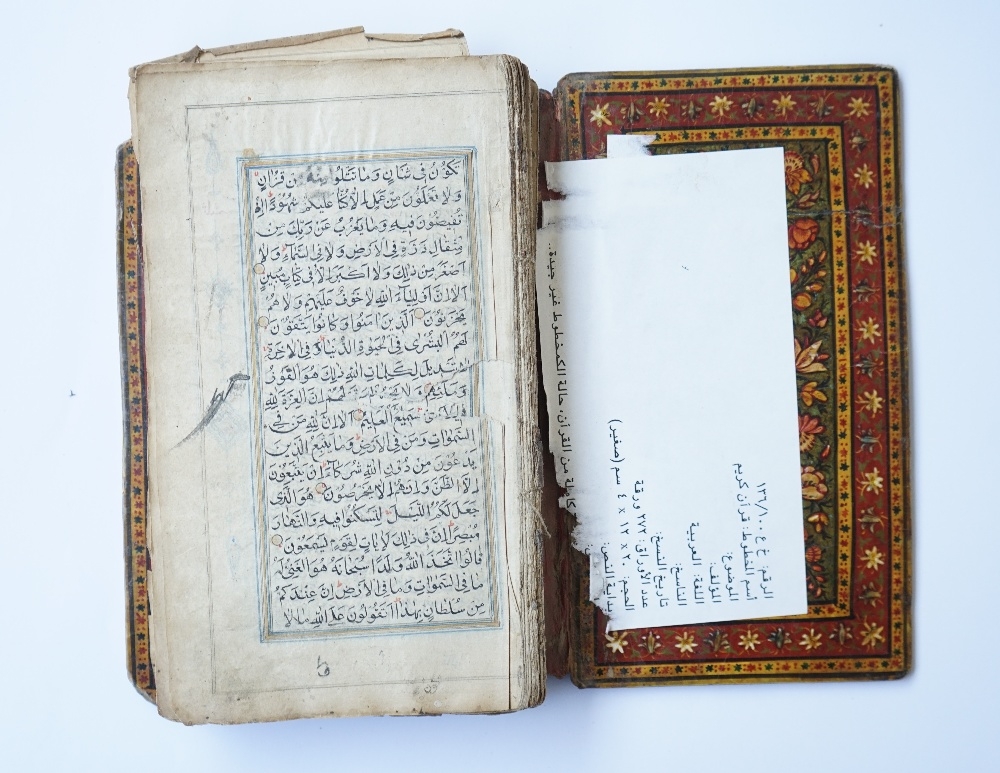 تكون في شان وما تتلوا منه من قران
ولا تعملون من عمل الا كنا عليكم شهودا اذ
تفيضون فيه وما يعزب عن ربك من
مثقال ذرة في الارض ولا في السماء ولا
اصغر من ذلك ولا اكبر الا في كتاب مبين
الا ان اولياء الله لا خوف عليهم ولا هم
يحزنون الذين امنوا وكانوا يتقون
لهم البشرى في الحيوة الدنيا وفي الاخرة
لا تبديل لكلمات الله ذلك هو الفوز
لهم ان العزة لله
جميعا هو السميع العليم الا ان لله من في
السموات ومن في الارض وما يتبع الذين
يدعون من دون الله شركاء ان يتبعون
الا الظن وان هم الا يخرصون هو الذي
جعل لكم الليل لتسكنوا فيه والنهار
مبصرا ان في ذلك لايات لقوم يسمعون
قالوا اتخذ الله ولدا سبحانه هو الغني له
ما في السموات وما في الارض ان عندكم
من سلطان بهذا اتقولون على الله ما لا
الرقم: خ ع ١٣٦/١٠٠
اسم المخطوط: قرآن كريم
الموضوع:
المؤلف:
اللغة: العربية
الناسخ:
تاريخ النسخ:
عدد الأوراق: ٢٧٢ ورقة
الحجم: ٢٠ x ١٢ x ٤ سم (صغير)
بداية النص:
كاملة من القرآن. حالة المخطوط غير جيدة..